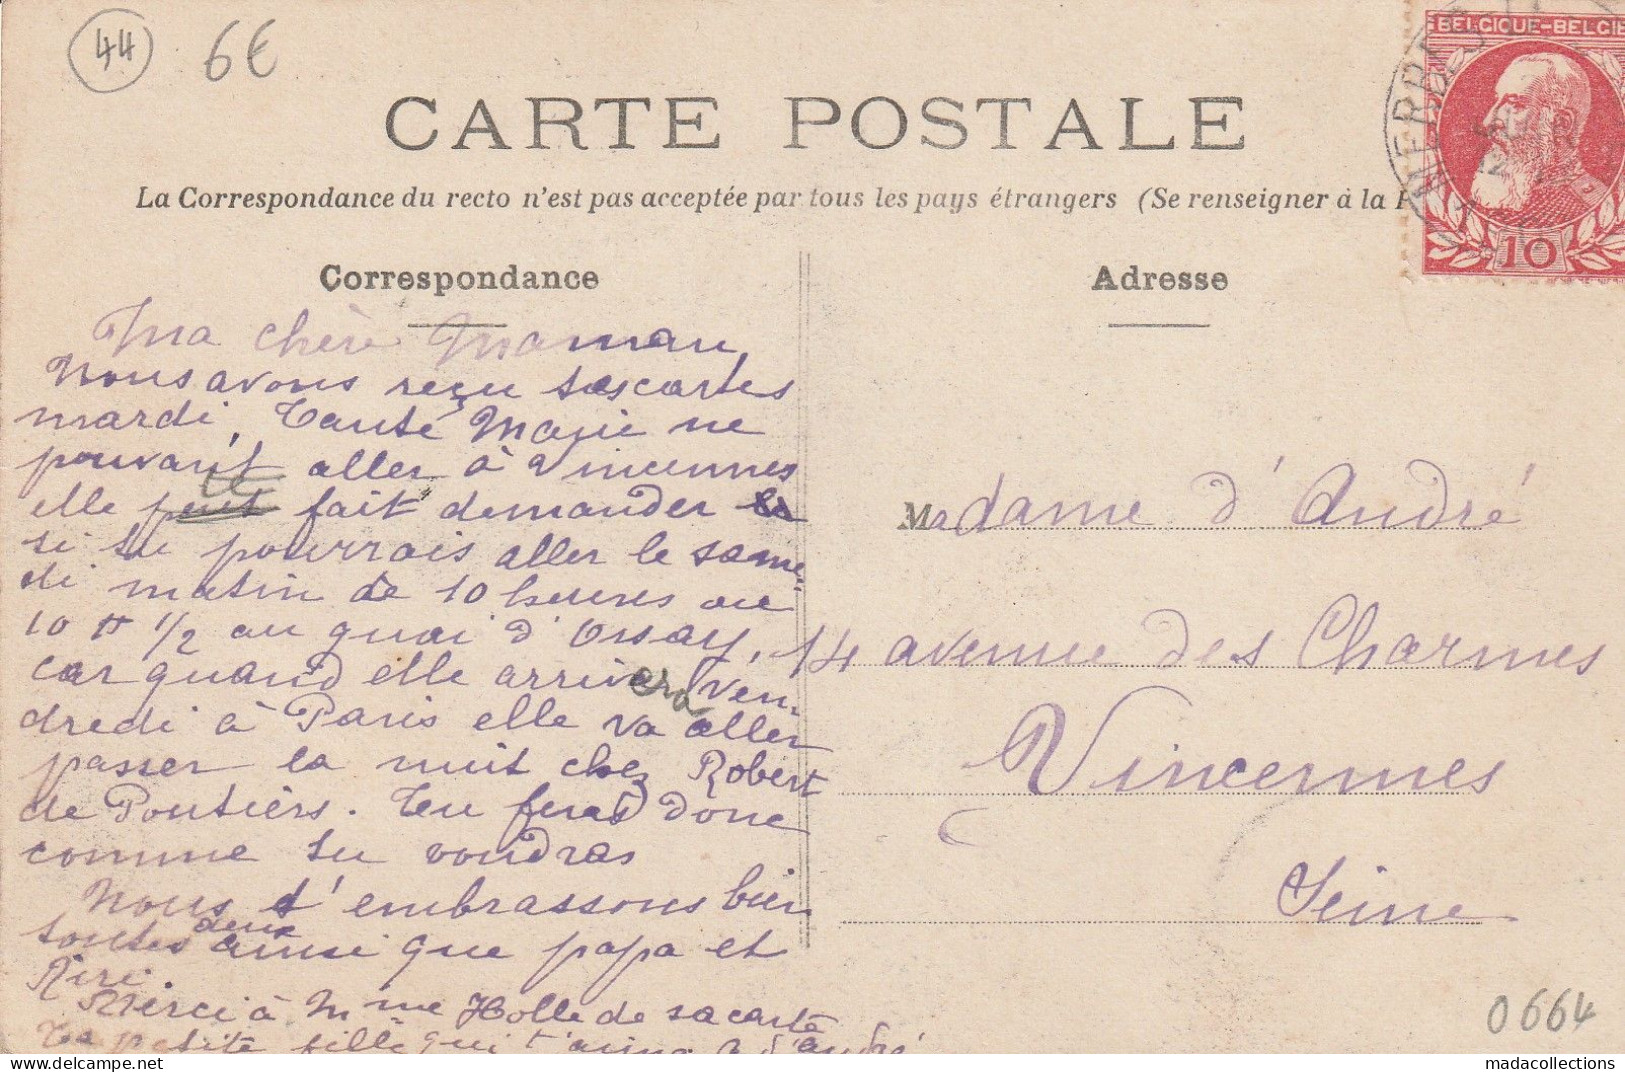 44
6€
BELGIQUE-BELGIE
10
CARTE POSTALE
La Correspondance du recto n'est pas acceptée par tous les pays étrangers (Se renseigner à la P
Correspondance
Adresse
Ma chère Maman,
Nous avons reçu tes cartes
mardi, Tante Marie ne
pouvant aller à Vincennes
elle fait demander
si tu pourrais aller le same-
di matin de 10 heures ou
10 h 1/2 au quai d'Orsay,
car quand elle arrivera ven-
dredi à Paris elle va aller
passer la nuit chez Robert
de Poutiers. Tu feras donc
comme tu voudras
Nous t'embrassons bien
toutes deux ainsi que papa et
Riri.
Merci à Mme Holle de sa carte
Ta petite fille qui t'aime d'André
Madame d'André
14 avenue des Charmes
Vincennes
Seine
0664
madacollections